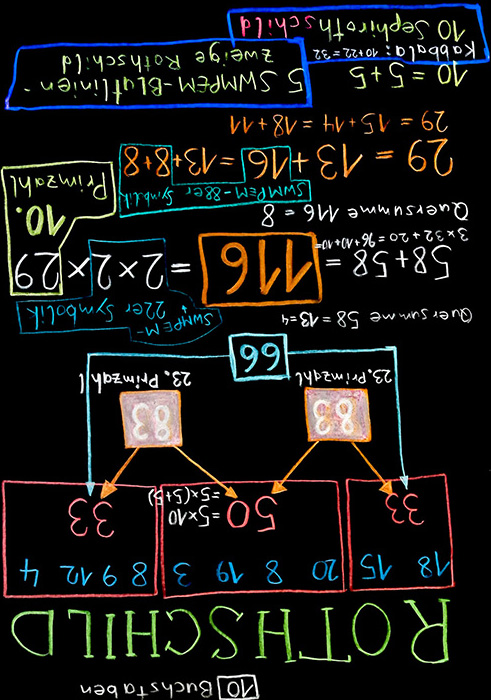 10 Buchstaben
ROTHSCHILD
18 15 20 8 19 3 8 9 12 4
33 50 = 5×10 33
= 5×(5+5)
83 83
23. Primzahl 23. Primzahl
66
Quersumme 58 = 13 = 4
SWMPEM-
22er Symbolik
58 + 58 = 116 = 2 × 2 × 29
3 × 32 + 20 = 96 + 10 + 10 =
Quersumme 116 = 8
10.
Primzahl
SWMPEM-88er Symbolik
29 = 13 + 16 = 13 + 8 + 8
29 = 15 + 14 = 18 + 11
10 = 5 + 5
Kabbala: 10 + 22 = 32
10 Sephirothschild
5 SWMPEM-Blutlinien-
zweige Rothschild